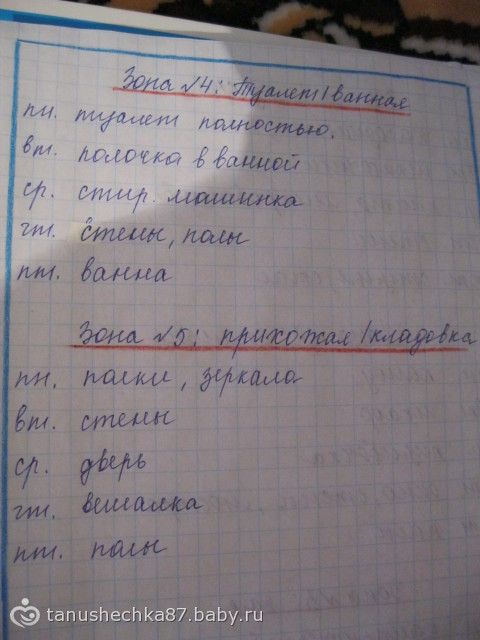 Зона №4: Туалет/ванная
пн. туалет полностью.
вт. полочка в ванной
ср. стир. машинка
чт. стены, полы
пт. ванна
Зона №5: прихожая/кладовка
пн. полки, зеркала
вт. стены
ср. дверь
чт. вешалка
пт. полы
tanushechka87.baby.ru